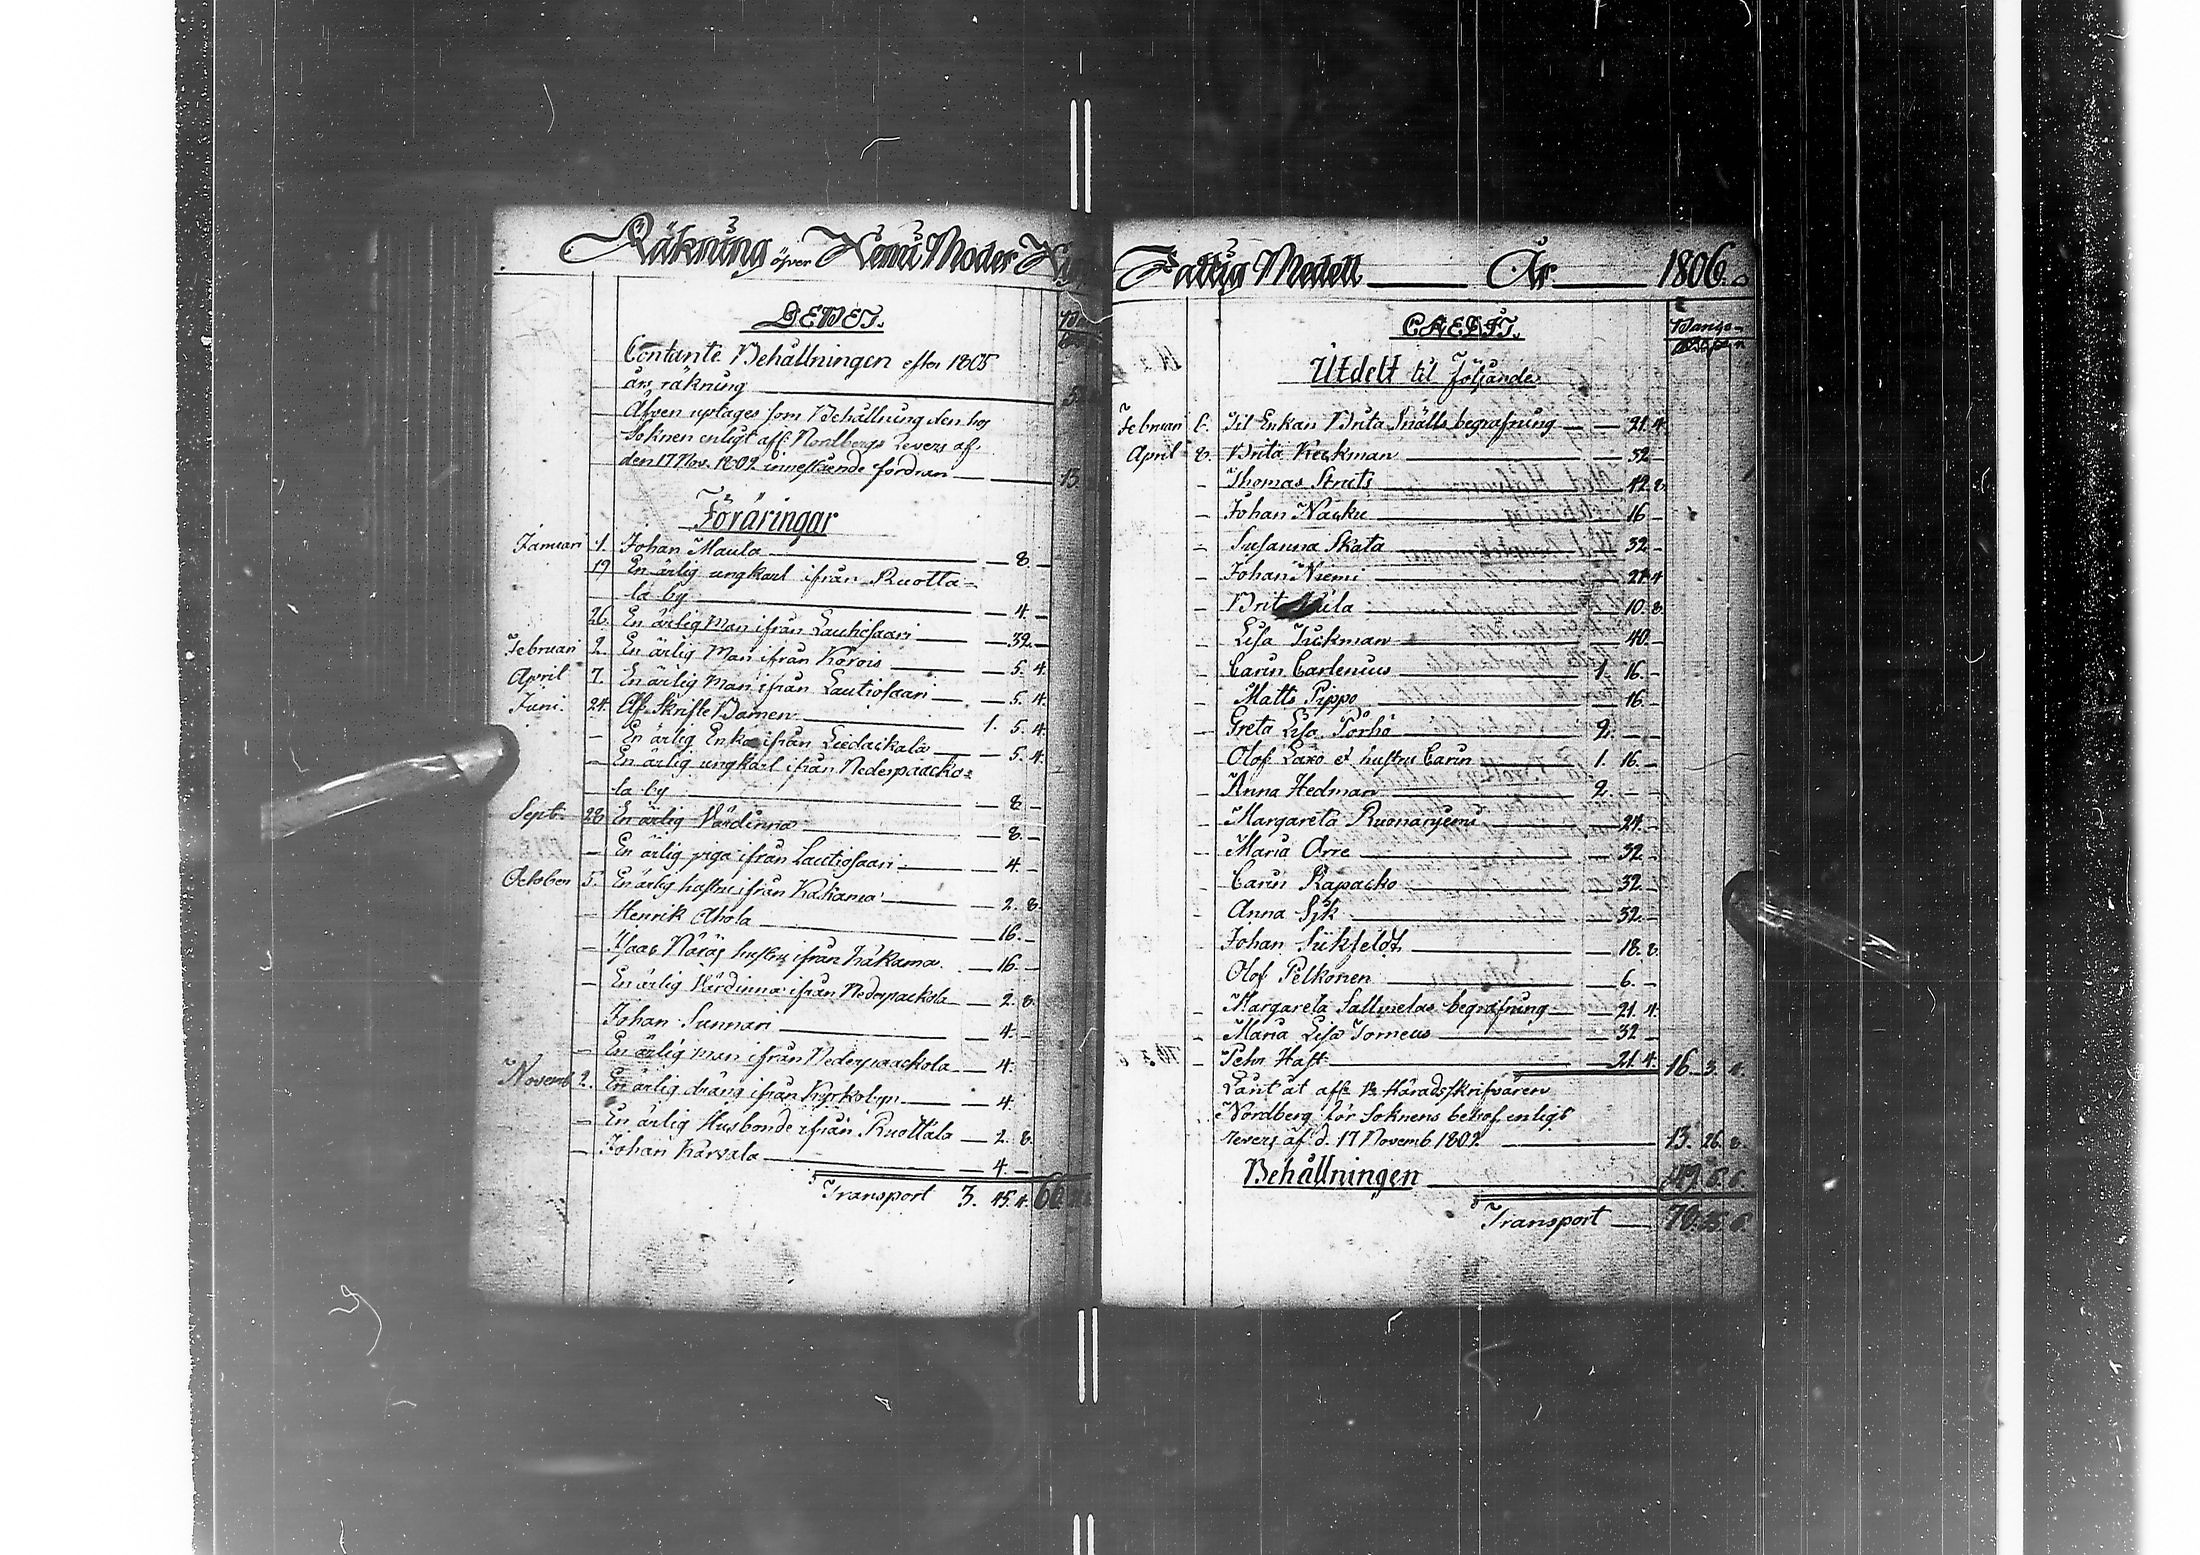 Räkning öfver Kemi Moder
DEBET.
Contante Behållningen efter 1805
års räkning
Äfven uptages som Behållning den hos
Soknen enligt aff: Nordbergs Revers af
den 17 Nov. 1802 innestående fordran 13
Föräringar
Januari 1. Johan Maula 8. -
19 En ärlig ungkarl ifrån Ruotta=
la by 4. -
26. En ärlig Man ifrån Lautiosaari 32. -
Februari 2. En ärlig Man ifrån Korois 5. 4.
April 7. En ärlig Man ifrån Lautiosaari 5. 4.
Juni. 24. Af Skrifte Barnen 1. 5. 4.
- En ärlig Enka ifrån Liedackala 5. 4.
- En ärlig ungkarl ifrån Nederpaacko=
la by 8. -
Sept. 28 En ärlig Värdinna 8. -
- En ärlig piga ifrån Lautiosaari 4. -
October 5. En ärlig hustru ifrån Kakama 2. 8.
- Henrik Ahola 16. -
- Isaac hustru ifrån Kakama 16. -
- En ärlig Värdinna ifrån Nederpackola 2. 8.
Johan Sunnari 4. -
- En ärlig man ifrån Nederpaackola 4.
Novemb. 2. En ärlig dräng ifrån Kyrkobyn 4.
- En ärlig Husbonde ifrån Ruottala 2. 8.
- Johan Karvala 4. -
Transport 3. 45. 4. 66
Fattig Medell År 1806.
CREDIT.
Banco
Utdelt til Följande
Februari 6. Til Enkan Brita Snälls begrafning 21. 4
April 8. Brita Keckman 32 -
- Thomas Strats 12. 8.
- Johan Nacku 16 -
- Susanna Skata 32 -
- Johan Niemi 21. 4
- Brita 10. 8.
- Lisa Tuckman 40. -
- Carin Carlenius 1. 16. -
- Matts Pippo 16. -
- Greta Lisa Torhå 2. - -
- Olof Laxo & hustru Carin 1. 16. -
- Anna Hedman 2. - -
- Margareta 24. -
- Maria Orre 32 -
- Carin Rapacko 32. -
- Anna Sjk 32. -
- Johan 18. 8.
- Olof Pelkonen 6. -
- Margareta Sallmelas begrafning 21. 4.
- Maria Lisa Torneus 32 -
- Pehr Hast 21. 4. 16. 3.
Länt åt aff: B. Häradsskrifvaren
Nordberg för Soknens behof enligt
revers af d. 17 Novemb. 1802 13. 26. 8.
Behållningen
Transport 79.